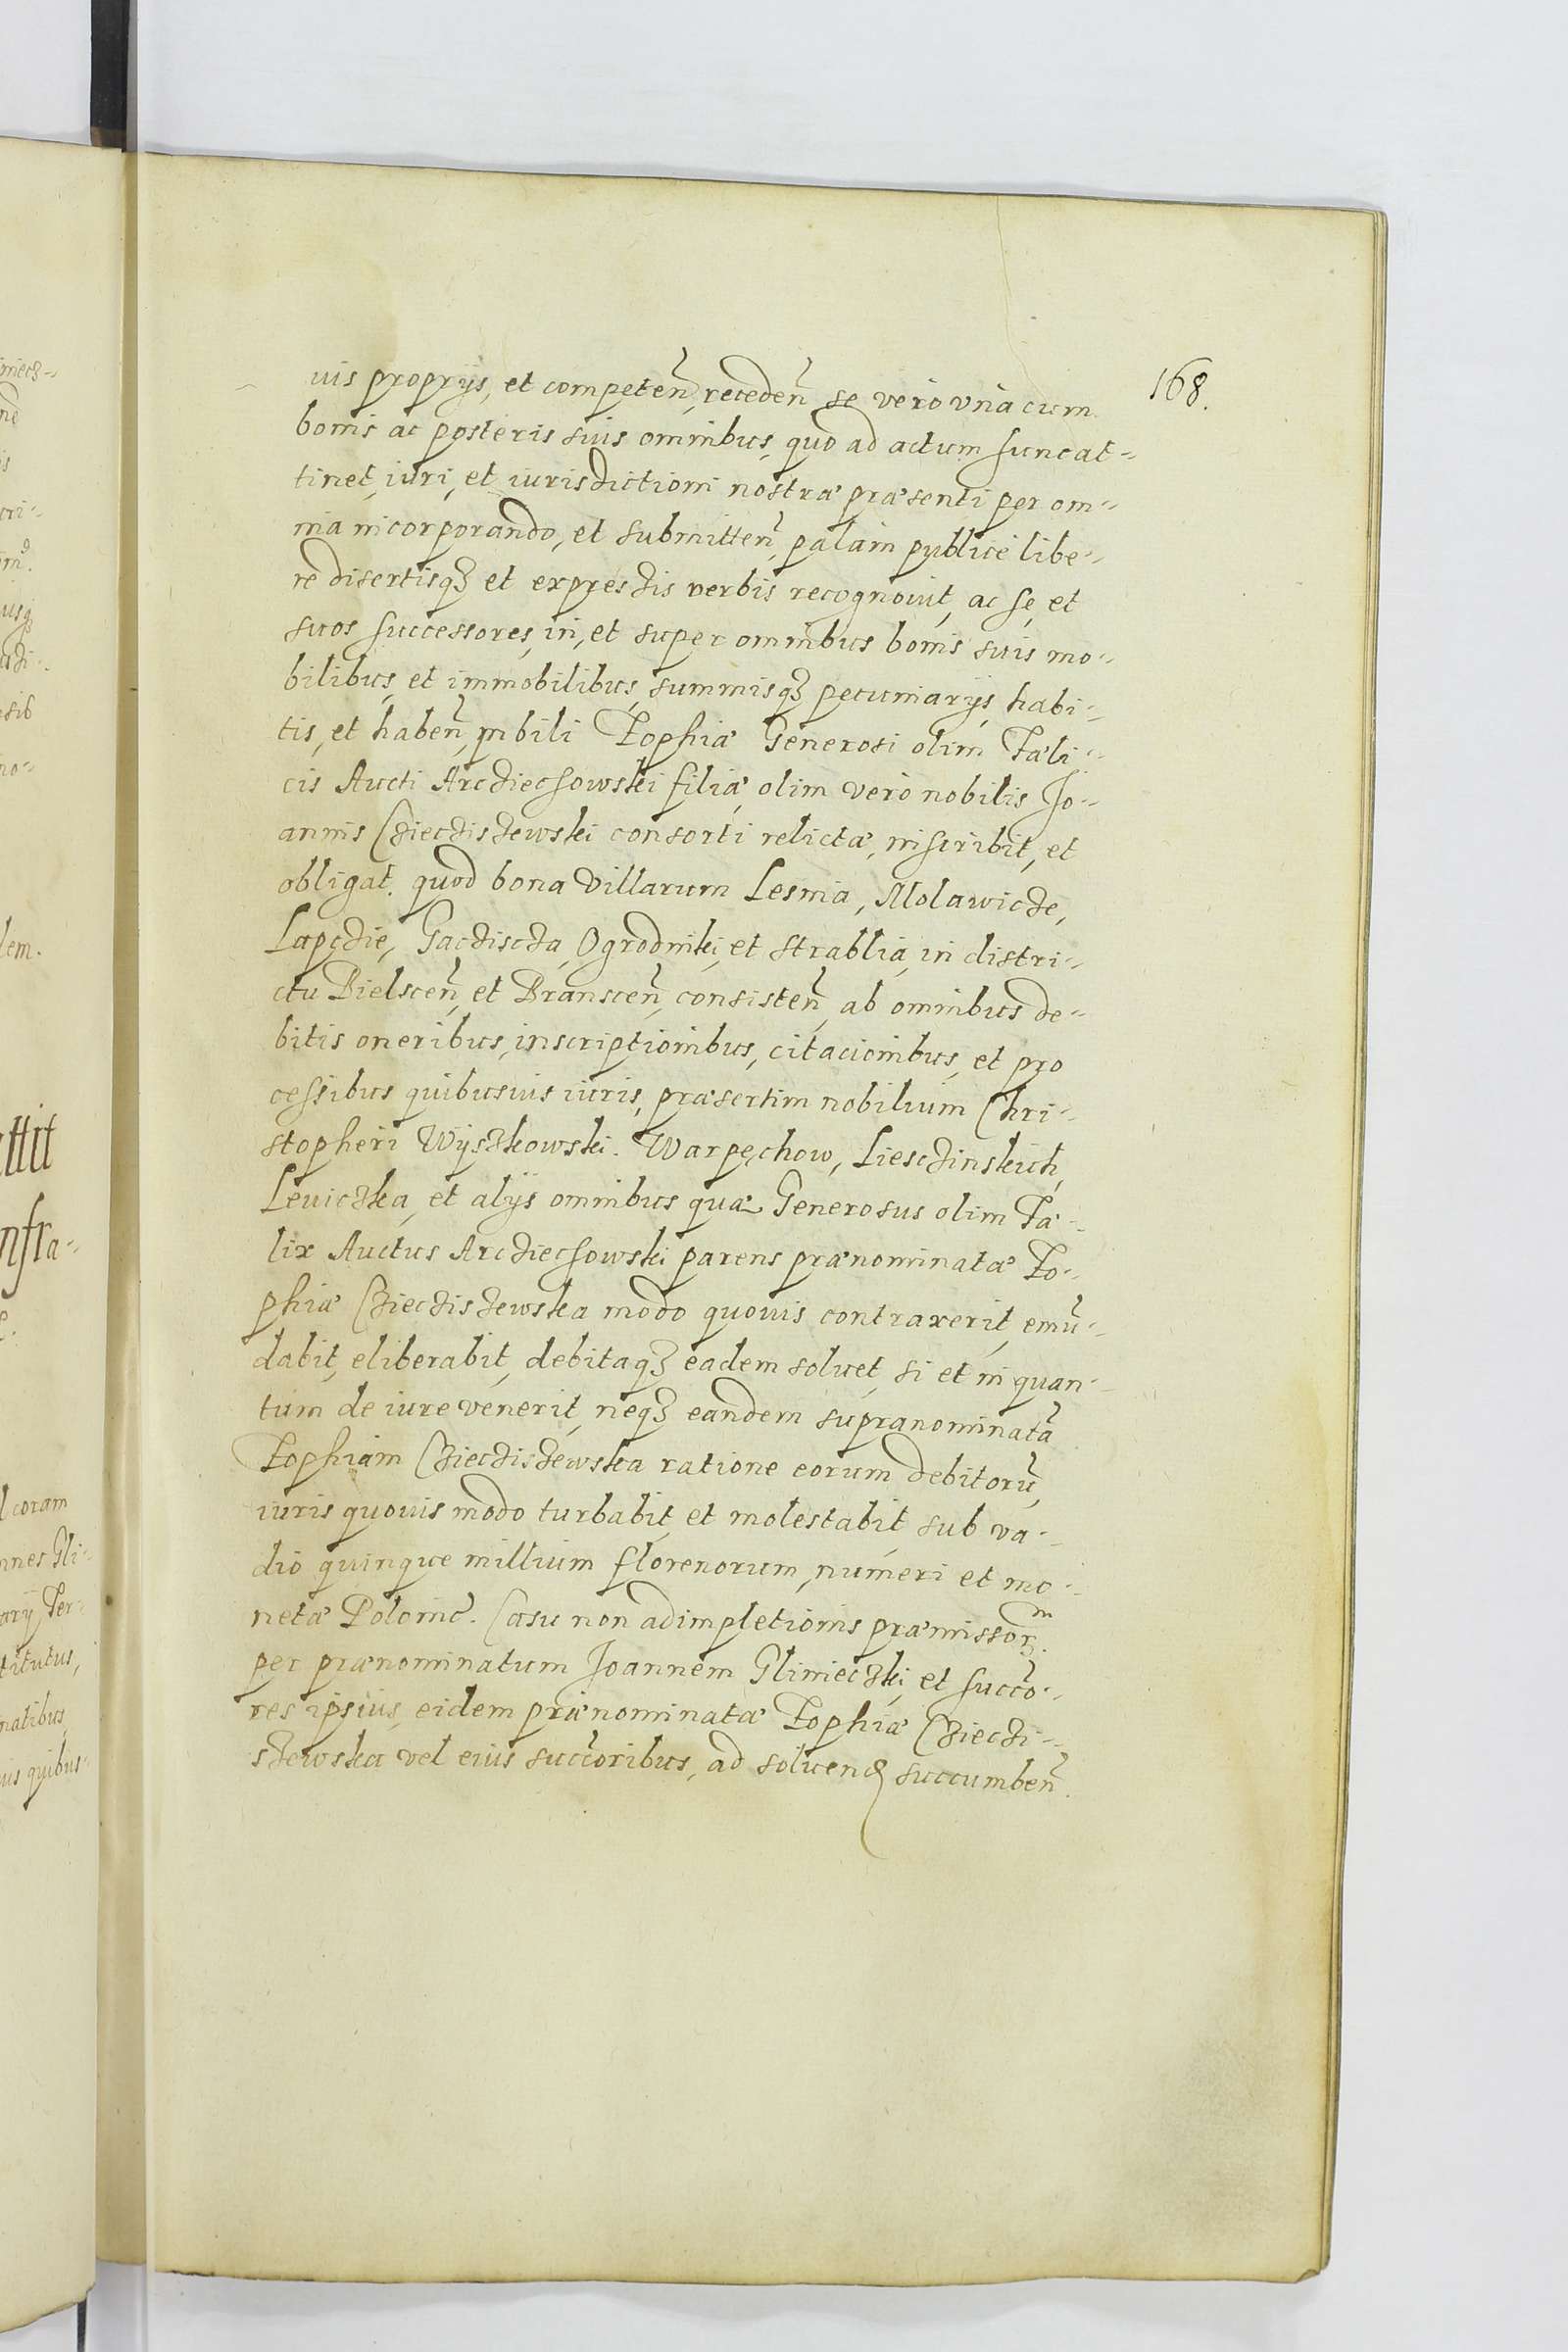 168.
uis proprijs, et competen̄, receden̄ se verò vnà cum
bonis ac posteris suis omnibus, quo ad actum hunc at-
tinet, iuri, et iurisdictioni nostræ præsenti per om-
nia incorporando, et submitten̄, palàm publicè libe-
rè disertisqꝫ et expressis verbis recognouit, ac se, et
suos successores, in, et super omnibus bonis suis mo-
bilibus, et immobilibus, summisqꝫ pecuniarijs, habi-
tis, et haben̄, nobili Zophiæ Generosi olim Fæli-
cis Aucti Arcziechowski filiæ, olim verò nobilis Jo-
annis Cziecziszewski consorti relictæ, inscribit, et
obligat. quod bona villarum Lesnia, Molawicze,
Lapczie, Gacziscza, Ogrodniki, et Strablia, in distri-
ctu Bielscen̄, et Branscen̄, consisten̄, ab omnibus de-
bitis oneribus, inscriptionibus, citacionibus, et pro
cessibus quibusuis iuris, præsertim nobilium Chri-
stopheri Wyszkowski. Warpechow, Liesczinskich,
Leuiczka, et alijs omnibus quæ Generosus olim Fæ-
lix Auctus Arcziechowski parens prænominatæ Zo-
phiæ Cziecziszewska modo quouis contraxerit, emū-
dabit, eliberabit, debitaqꝫ eadem soluet, si et in quan-
tum de iure venerit, neqꝫ eandem supranominatā
Zophiam Cziecziszewska ratione eorum debitorū,
iuris quouis modo turbabit, et molestabit sub va-
dio quinque millium florenorum, numeri et mo-
netæ Polonic̄. Casu non adimpletionis præmissorᵐ.
per prænominatum Joannem Glinieczki, et succo-
res ipsius, eidem prænominatæ Zophiæ Czieczi-
szewska vel eius succoribus, ad soluenđ succumben̄.